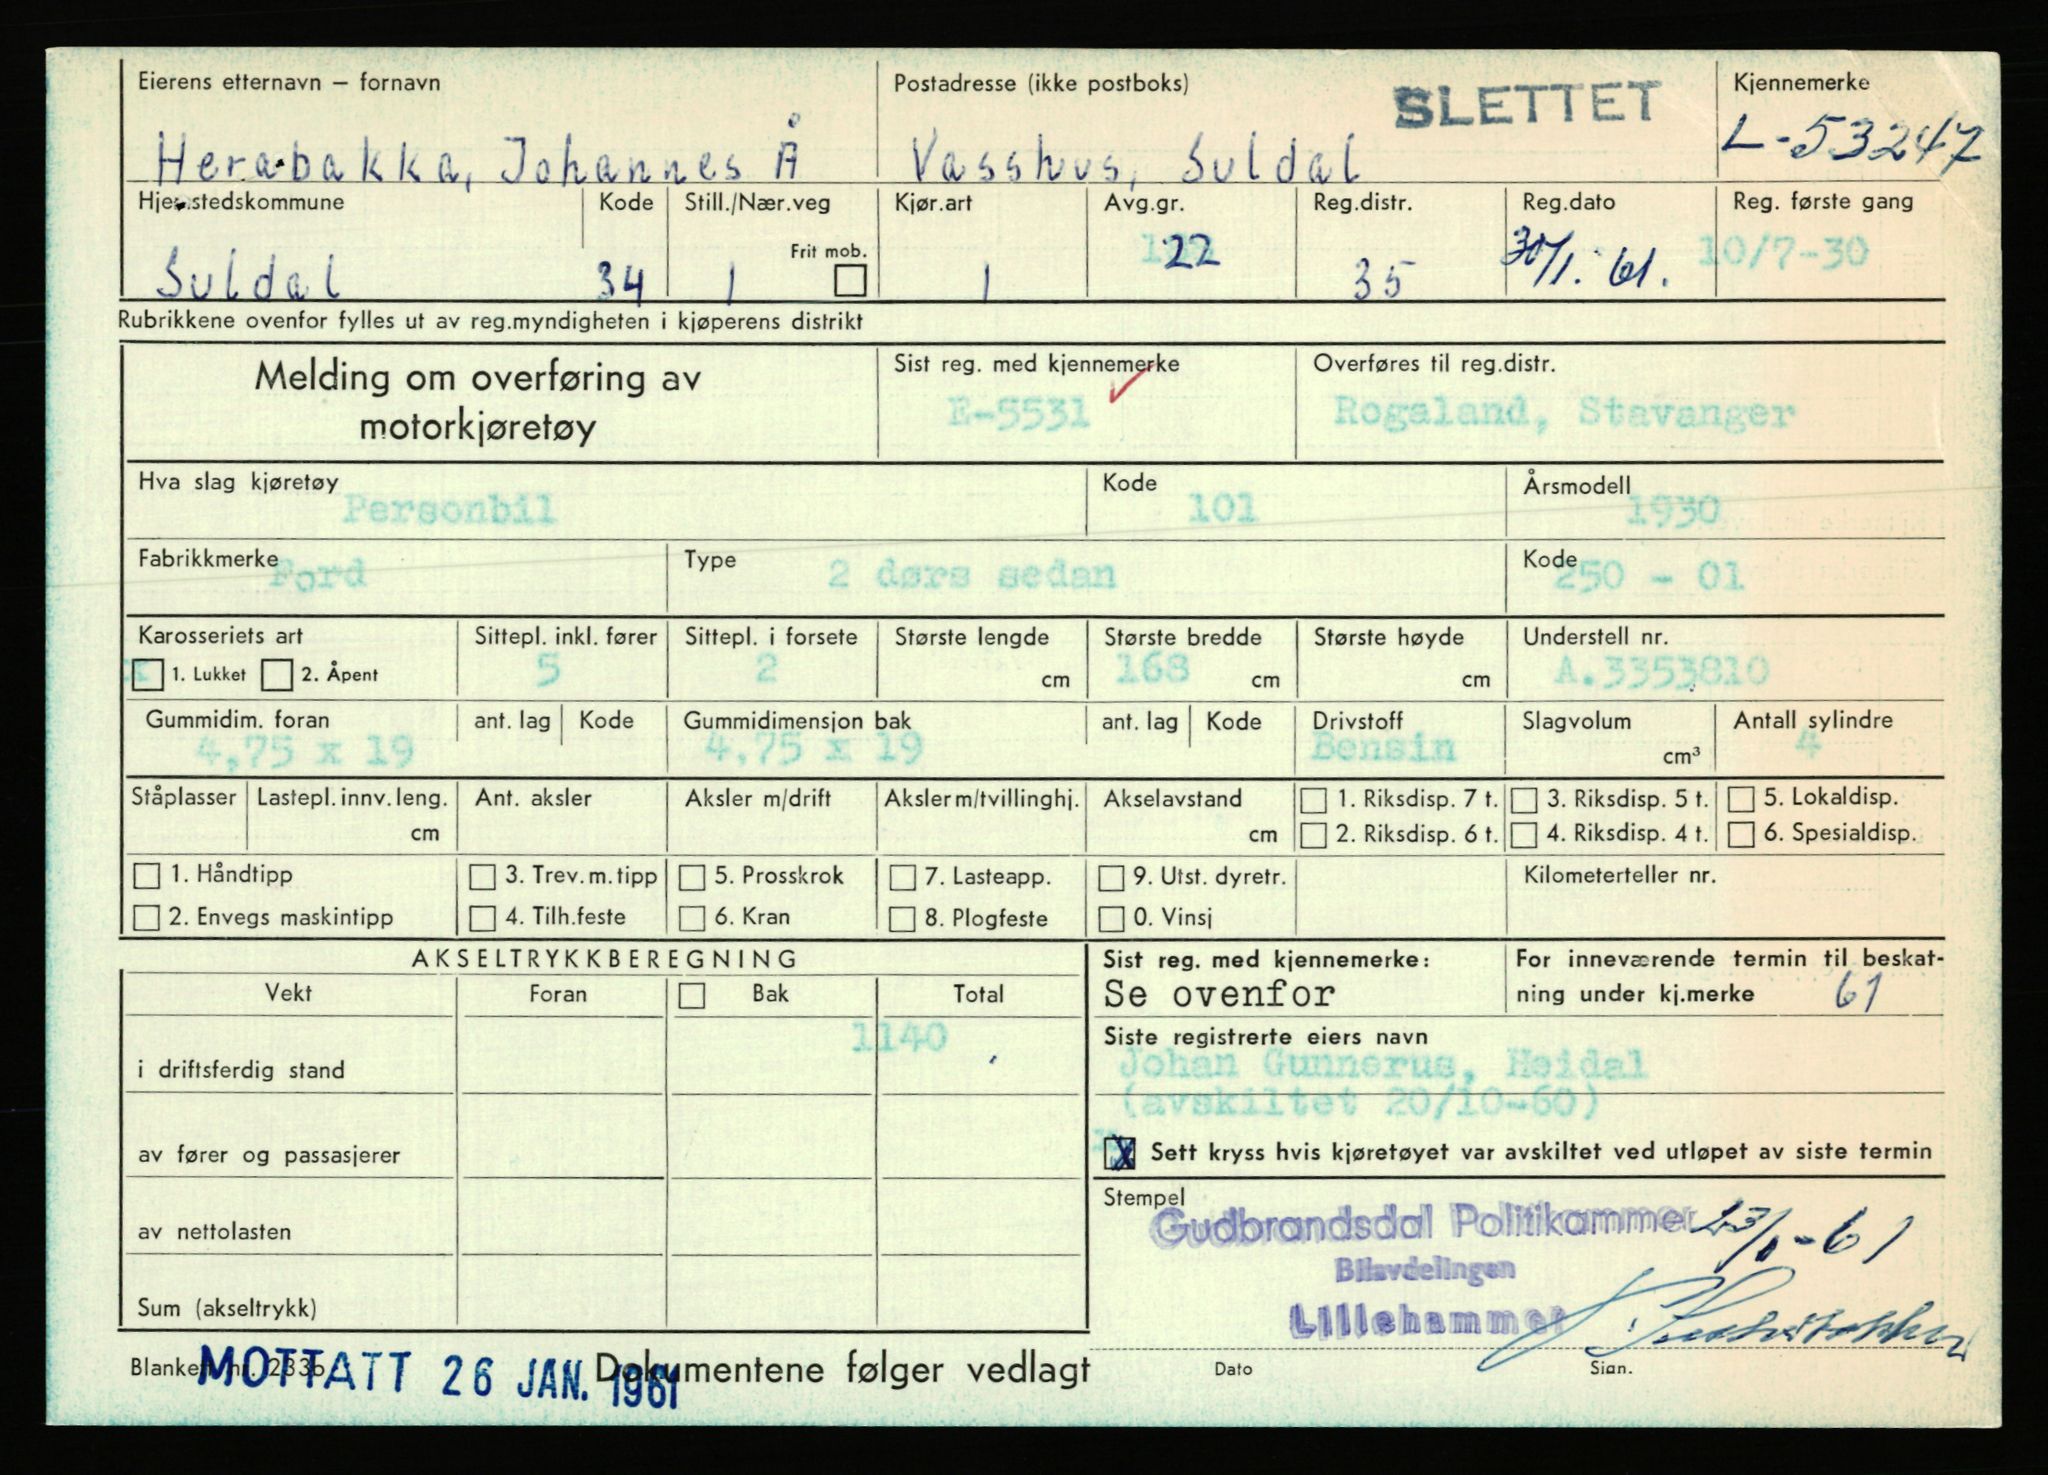 Eierens etternavn – fornavn Postadresse (ikke postboks) SLETTET Kjennemerke
Herabakka, Johannes Å Vasshus, Suldal L-53247
Hjemstedskommune Kode Still./Nær.veg Kjør.art Avg.gr. Reg.distr. Reg.dato Reg. første gang
Frit mob.
Suldal 34 1 1 22 35 30/1. 61. 10/7-30
Rubrikkene ovenfor fylles ut av reg.myndigheten i kjøperens distrikt
Melding om overføring av Sist reg. med kjennemerke Overføres til reg.distr.
motorkjøretøy E-5531 Rogaland, Stavanger
Hva slag kjøretøy Kode Årsmodell
Personbil 101 1930
Fabrikkmerke Type Kode
Ford 2 dørs sedan 250 - 01
Karosseriets art Sittepl. inkl. fører Sittepl. i forsete Største lengde Største bredde Største høyde Understell nr.
x 1. Lukket 2. Åpent 5 2 cm 168 cm cm A.3353810
Gummidim. foran ant. lag Kode Gummidimensjon bak ant. lag Kode Drivstoff Slagvolum Antall sylindre
4,75 x 19 4,75 x 19 Bensin cm³ 4
Ståplasser Lastepl. innv. leng. Ant. aksler Aksler m/drift Aksler m/tvillinghj. Akselavstand 1. Riksdisp. 7 t. 3. Riksdisp. 5 t. 5. Lokaldisp.
cm cm 2. Riksdisp. 6 t. 4. Riksdisp. 4 t. 6. Spesialdisp.
1. Håndtipp 3. Trev. m. tipp 5. Prosskrok 7. Lasteapp. 9. Utst. dyretr. Kilometerteller nr.
2. Envegs maskintipp 4. Tilh.feste 6. Kran 8. Plogfeste 0. Vinsj
AKSELTRYKKBEREGNING Sist reg. med kjennemerke: For inneværende termin til beskat-
Vekt Foran Bak Total Se ovenfor ning under kj.merke 61
1140 Siste registrerte eiers navn
i driftsferdig stand Johan Gunnerus, Heidal
(avskiltet 20/10-60)
av fører og passasjerer x Sett kryss hvis kjøretøyet var avskiltet ved utløpet av siste termin
Stempel
av nettolasten Gudbrandsdal Politikammer 23/1-61
Bilavdelingen
Sum (akseltrykk) Lillehammer
Blankett nr. 233b Dokumentene følger vedlagt Dato Sign.
MOTTATT 26 JAN. 1961